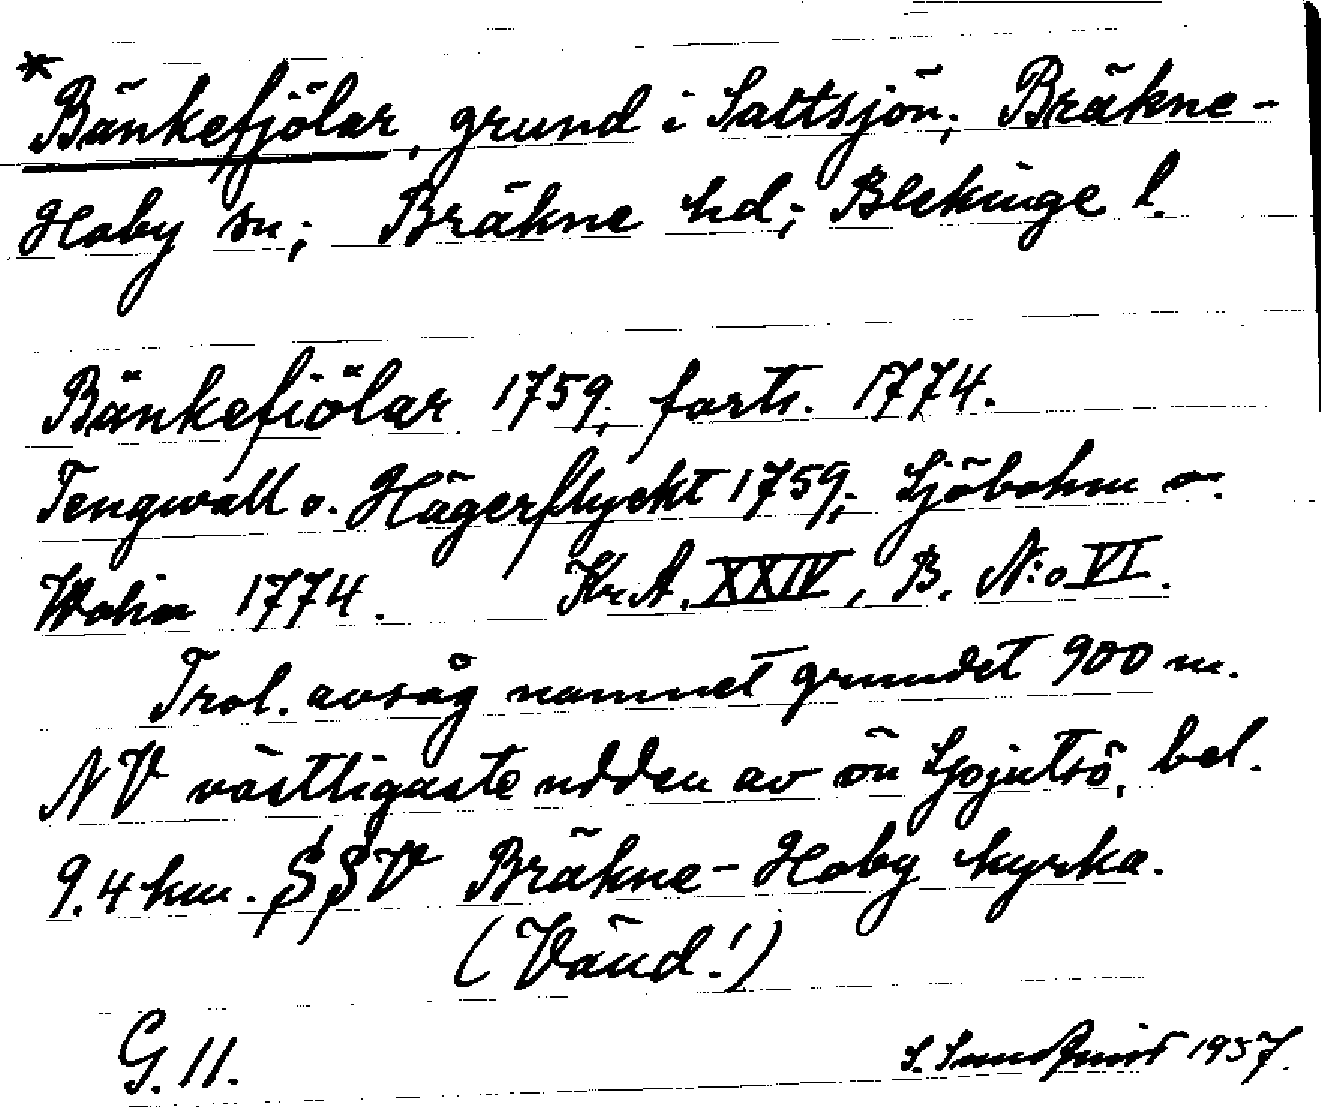 *Bänkefjölar, grund i Saltsjön; Bräkne-
Hoby sn; Bräkne hd; Blekinge l.
Bänkefiölar 1759; forts. 1774.
Tengwall o. Hägerflyckt 1759; Sjöbohm o.
Wohin 1774. Kr.A. XXIV, B. N:o VI.
Trol. avsåg namnet grundet 900 m.
NV västligaste udden av ön Spjutsö, bel.
9.4 km. SSV Bräkne-Hoby kyrka.
(Vänd!)
G. 11. S. Sundquist 1937.